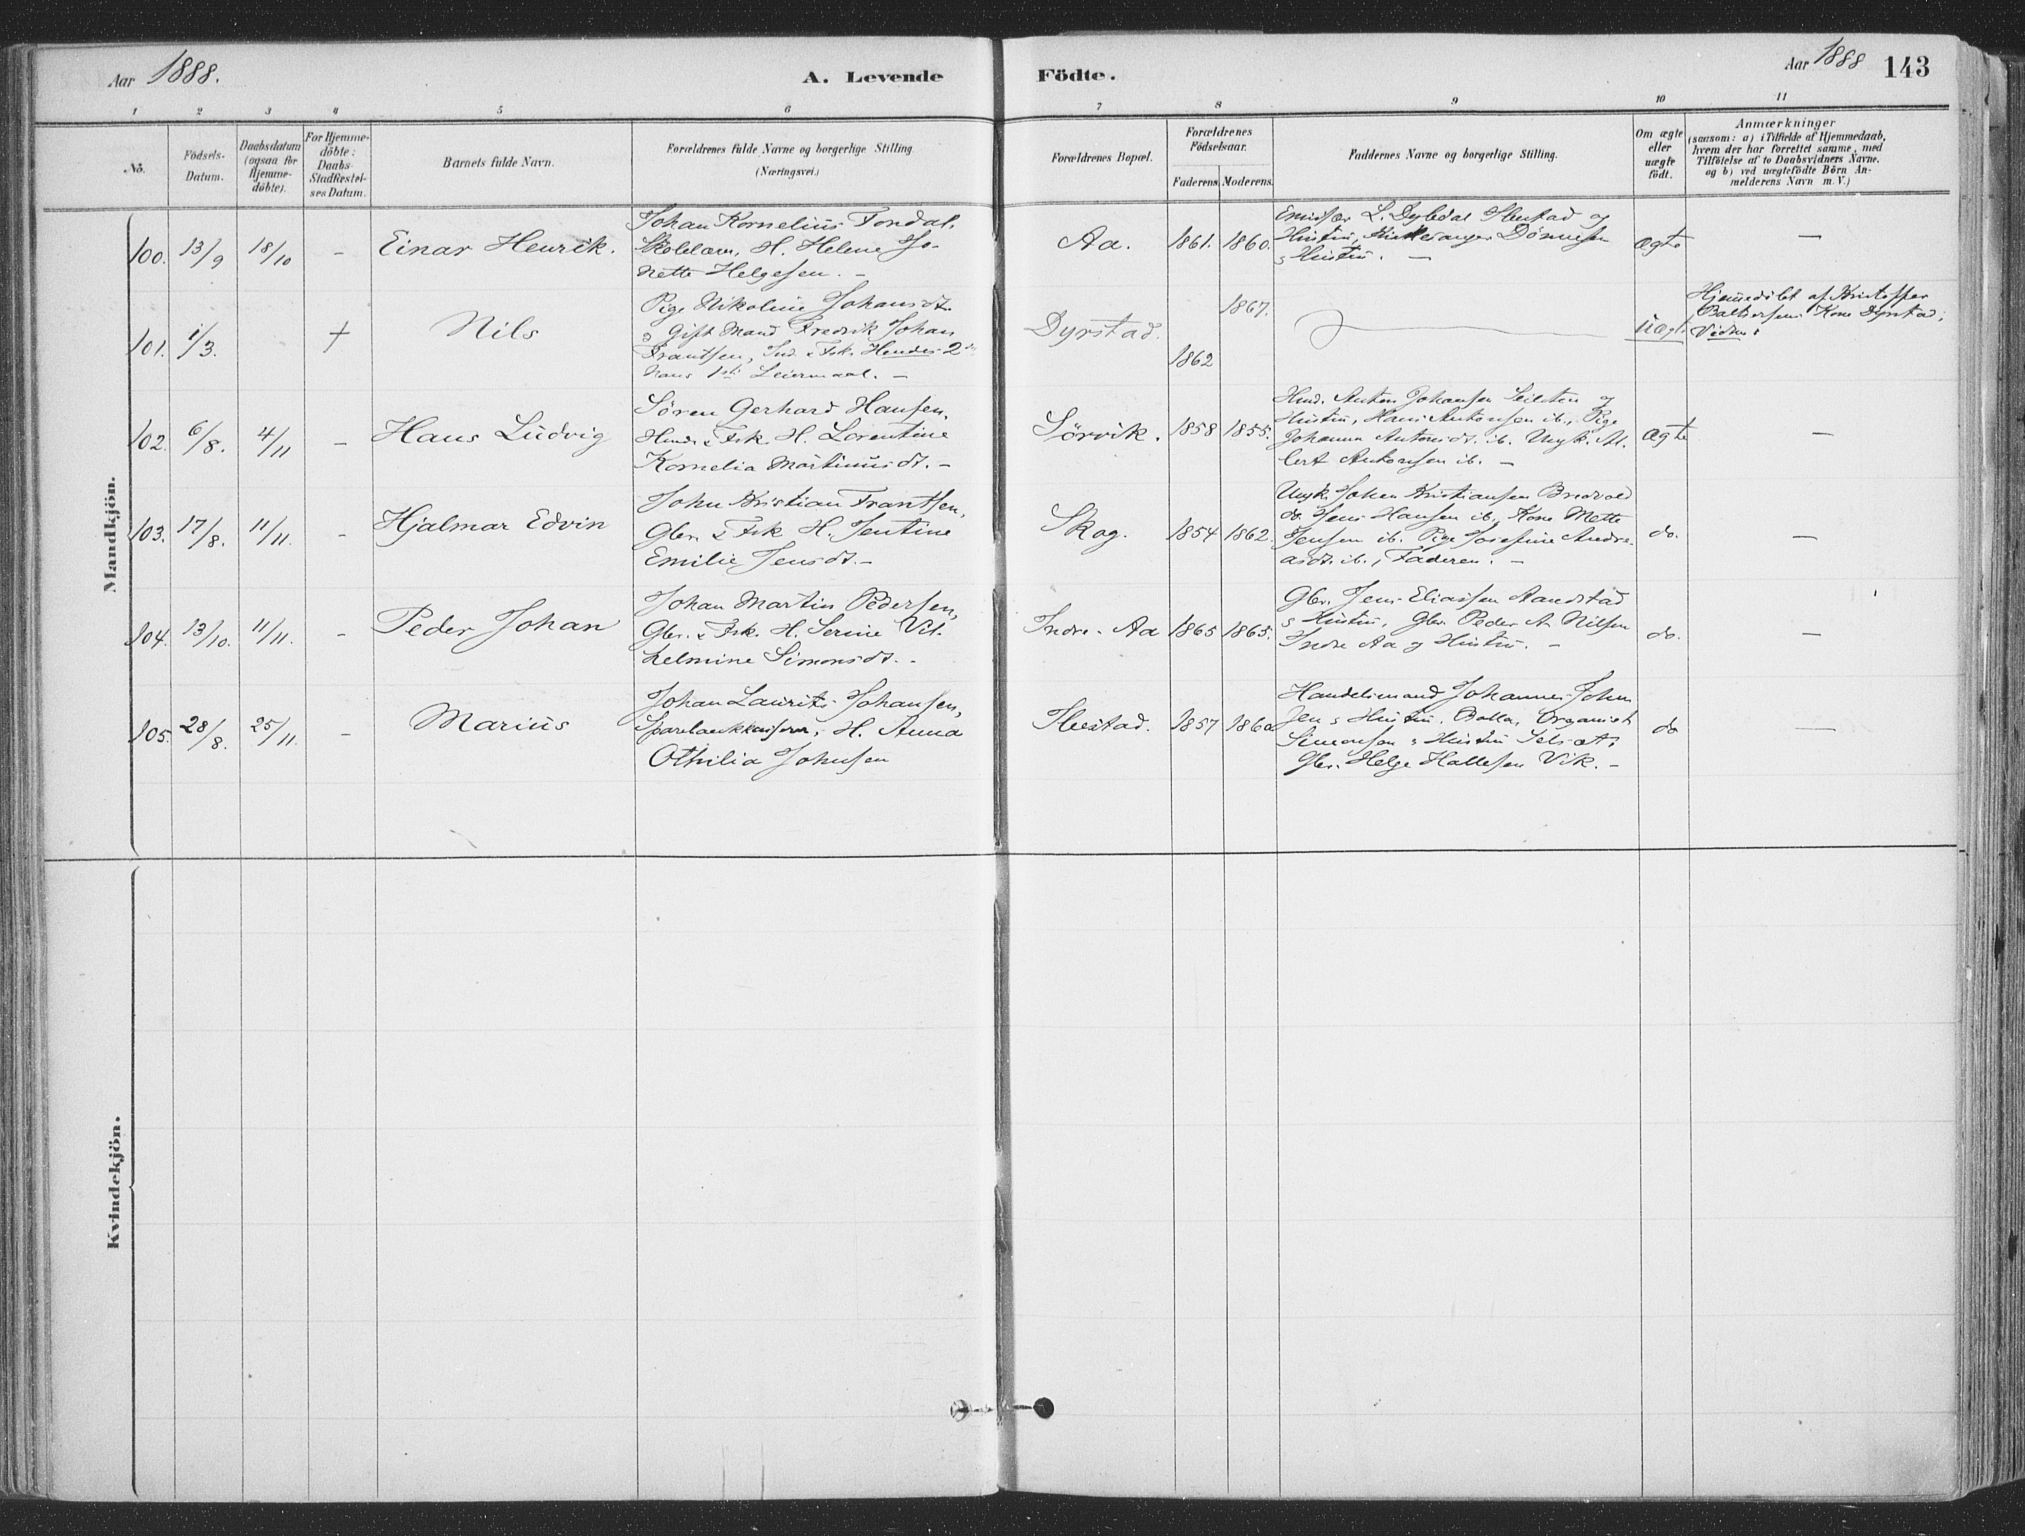 Aar 1888.
A. Levende
Födte.
Aar 1888
143
1 2 3 4 5 6 7 8 9 10 11
No.
Födsels-
Datum.
Daabsdatum
(ogsaa for
Hjemme-
döbte).
For Hjemme-
döbte:
Daabs-
Stadfæstel-
ses Datum.
Barnets fulde Navn.
Forældrenes fulde Navne og borgerlige Stilling
(Næringsvei.)
Forældrenes Bopæl.
Forældrenes
Födselsaar.
Faderens Moderens.
Faddernes Navne og borgerlige Stilling.
Om ægte
eller
uægte
födt.
Anmærkninger
(saasom: a) i Tilfælde af Hjemmedaab,
hvem der har forrettet samme, med
Tilföielse af to Daabsvidners Navne.
og b) ved uægtefödte Börn An-
melderens Navn m. V.)
Mandkjön.
100. 13/9 18/10 - Einar Henrik.
Johan Kornelius Fondal.
Skolelærer, H. Helene Jo-
nette Helgesen. -
Aa. 1861. 1860.
L. Dybdal og
Hustru, Kirkesanger Dönnesen
& Hustru. -
ægte -
101. 1/3. + Nils
Pige Nikoline Johansdt.
& Gift Mand Fredrik Johan
Frantsen, Ind. & Fsk. Hendes 2det
hans 1ste Leiermaal. -
Dyrstad. 1862 1867.
Uægt.
Hjemmedöbt af Kristoffer
Baltsersens Kone Dyrstad,
102. 6/8. 4/11 - Hans Ludvig
Sören Gerhard Hansen,
Husm. & Fsk. H. Lorentine
Kornelia Martinusdt. -
Sörvik. 1858 1855.
Husm. Anton Johansen og
Hustru, Hans Antonsen ib., Pige
Johanna Antonsdt. ib. Ungk. Al-
bert Antonsen ib. -
ægte -
103. 17/8. 11/11. - Hjalmar Edvin
John Kristian Frantsen,
Gbr. & Fsk H. Jentine
Emilie Jensdt. -
Skog. 1854 1862.
Ungk. Johan Kristiansen Bredvold
do. Jens Hansen ib., Kone Mette
Jensen ib. Pige Josefine Andre-
asdt. ib., Faderen. -
do. -
104. 13/10. 11/11. - Peder Johan
Johan Martin Pedersen,
Gbr. & Fsk. H. Serine Vil-
helmine Simonsdt. -
Indre-Aa 1865 1865.
Gbr. Jens Eliassen Aandstad
& Hustru, Gbr. Peder A. Nilsen
Indre Aa og Hustru. -
do. -
105. 28/8. 25/11. - Marius
Johan Laurits Johansen,
Sparebankkasserer, H. Anna
Othilia Johnsen
1857 1860
Handelsmand Johannes John-
sen & Hustru, Bolla, Organist
Simonsen & Hustru
Gbr. Helge Hallesen Vik. -
do -
Kvindekjön.